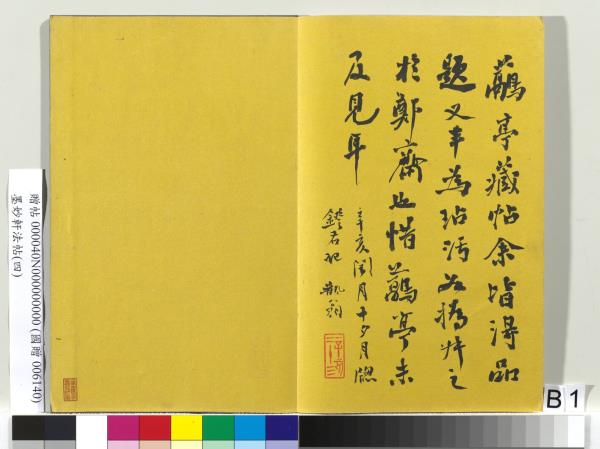 蘬亭藏帖余皆得品
題又率為玷污如橋叶之
於鄭齋也惜蘬亭未
及見耳
辛亥閏月十夕月
君記 瓻翁
贈帖 000040N000000000 (國贈 006140)
墨妙軒法帖(四)
B1